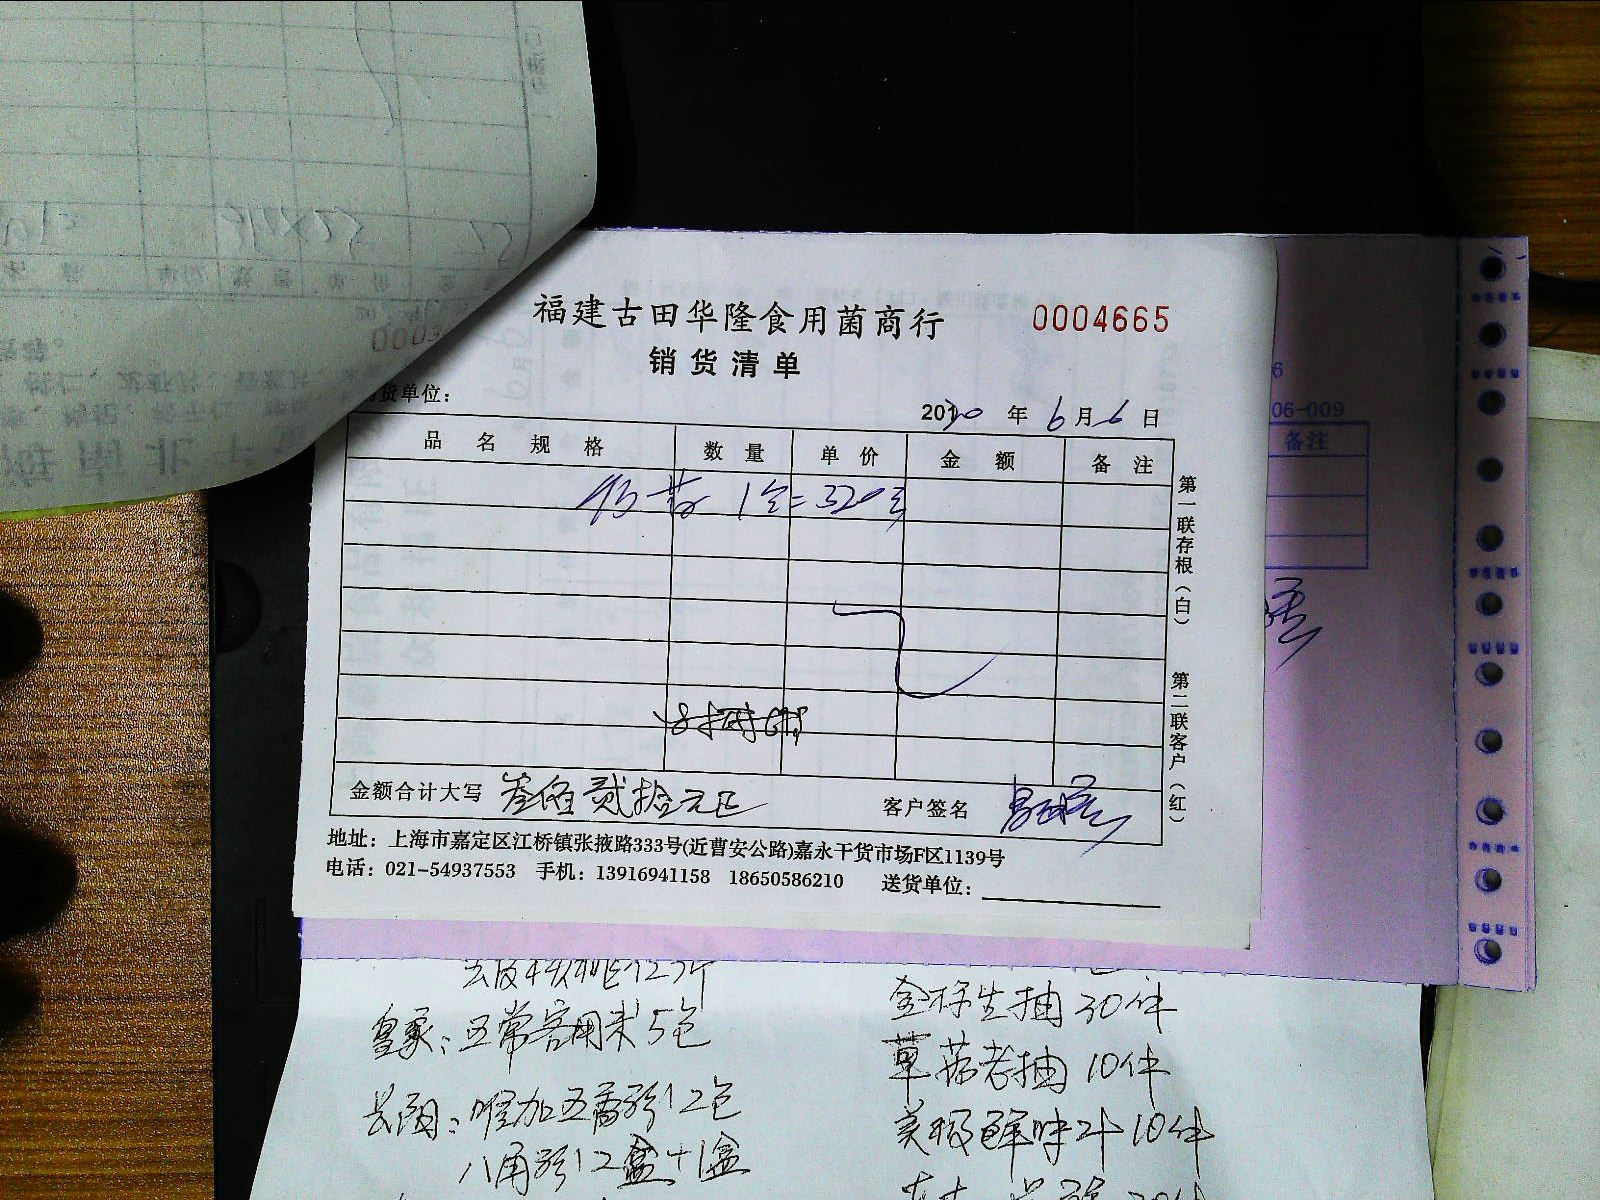 福建古田华隆食用菌商行
0004665
销货清单
货单位：
2020 年 6月 6 日
品名规格 数量 单价 金额 备注
1包=320元
金额合计大写 叁佰贰拾元正
客户签名
地址：上海市嘉定区江桥镇张掖路333号(近曹安公路)嘉永干货市场F区1139号
电话：021-54937553 手机：13916941158 18650586210 送货单位：
第一联存根（白）
第二联客户（红）
06-009
备注
皇家：五常客用米5包
味加五香粉12包
八角粉12盒+1盒
金标生抽30件
草菇老抽10件
美极鲜味汁10件